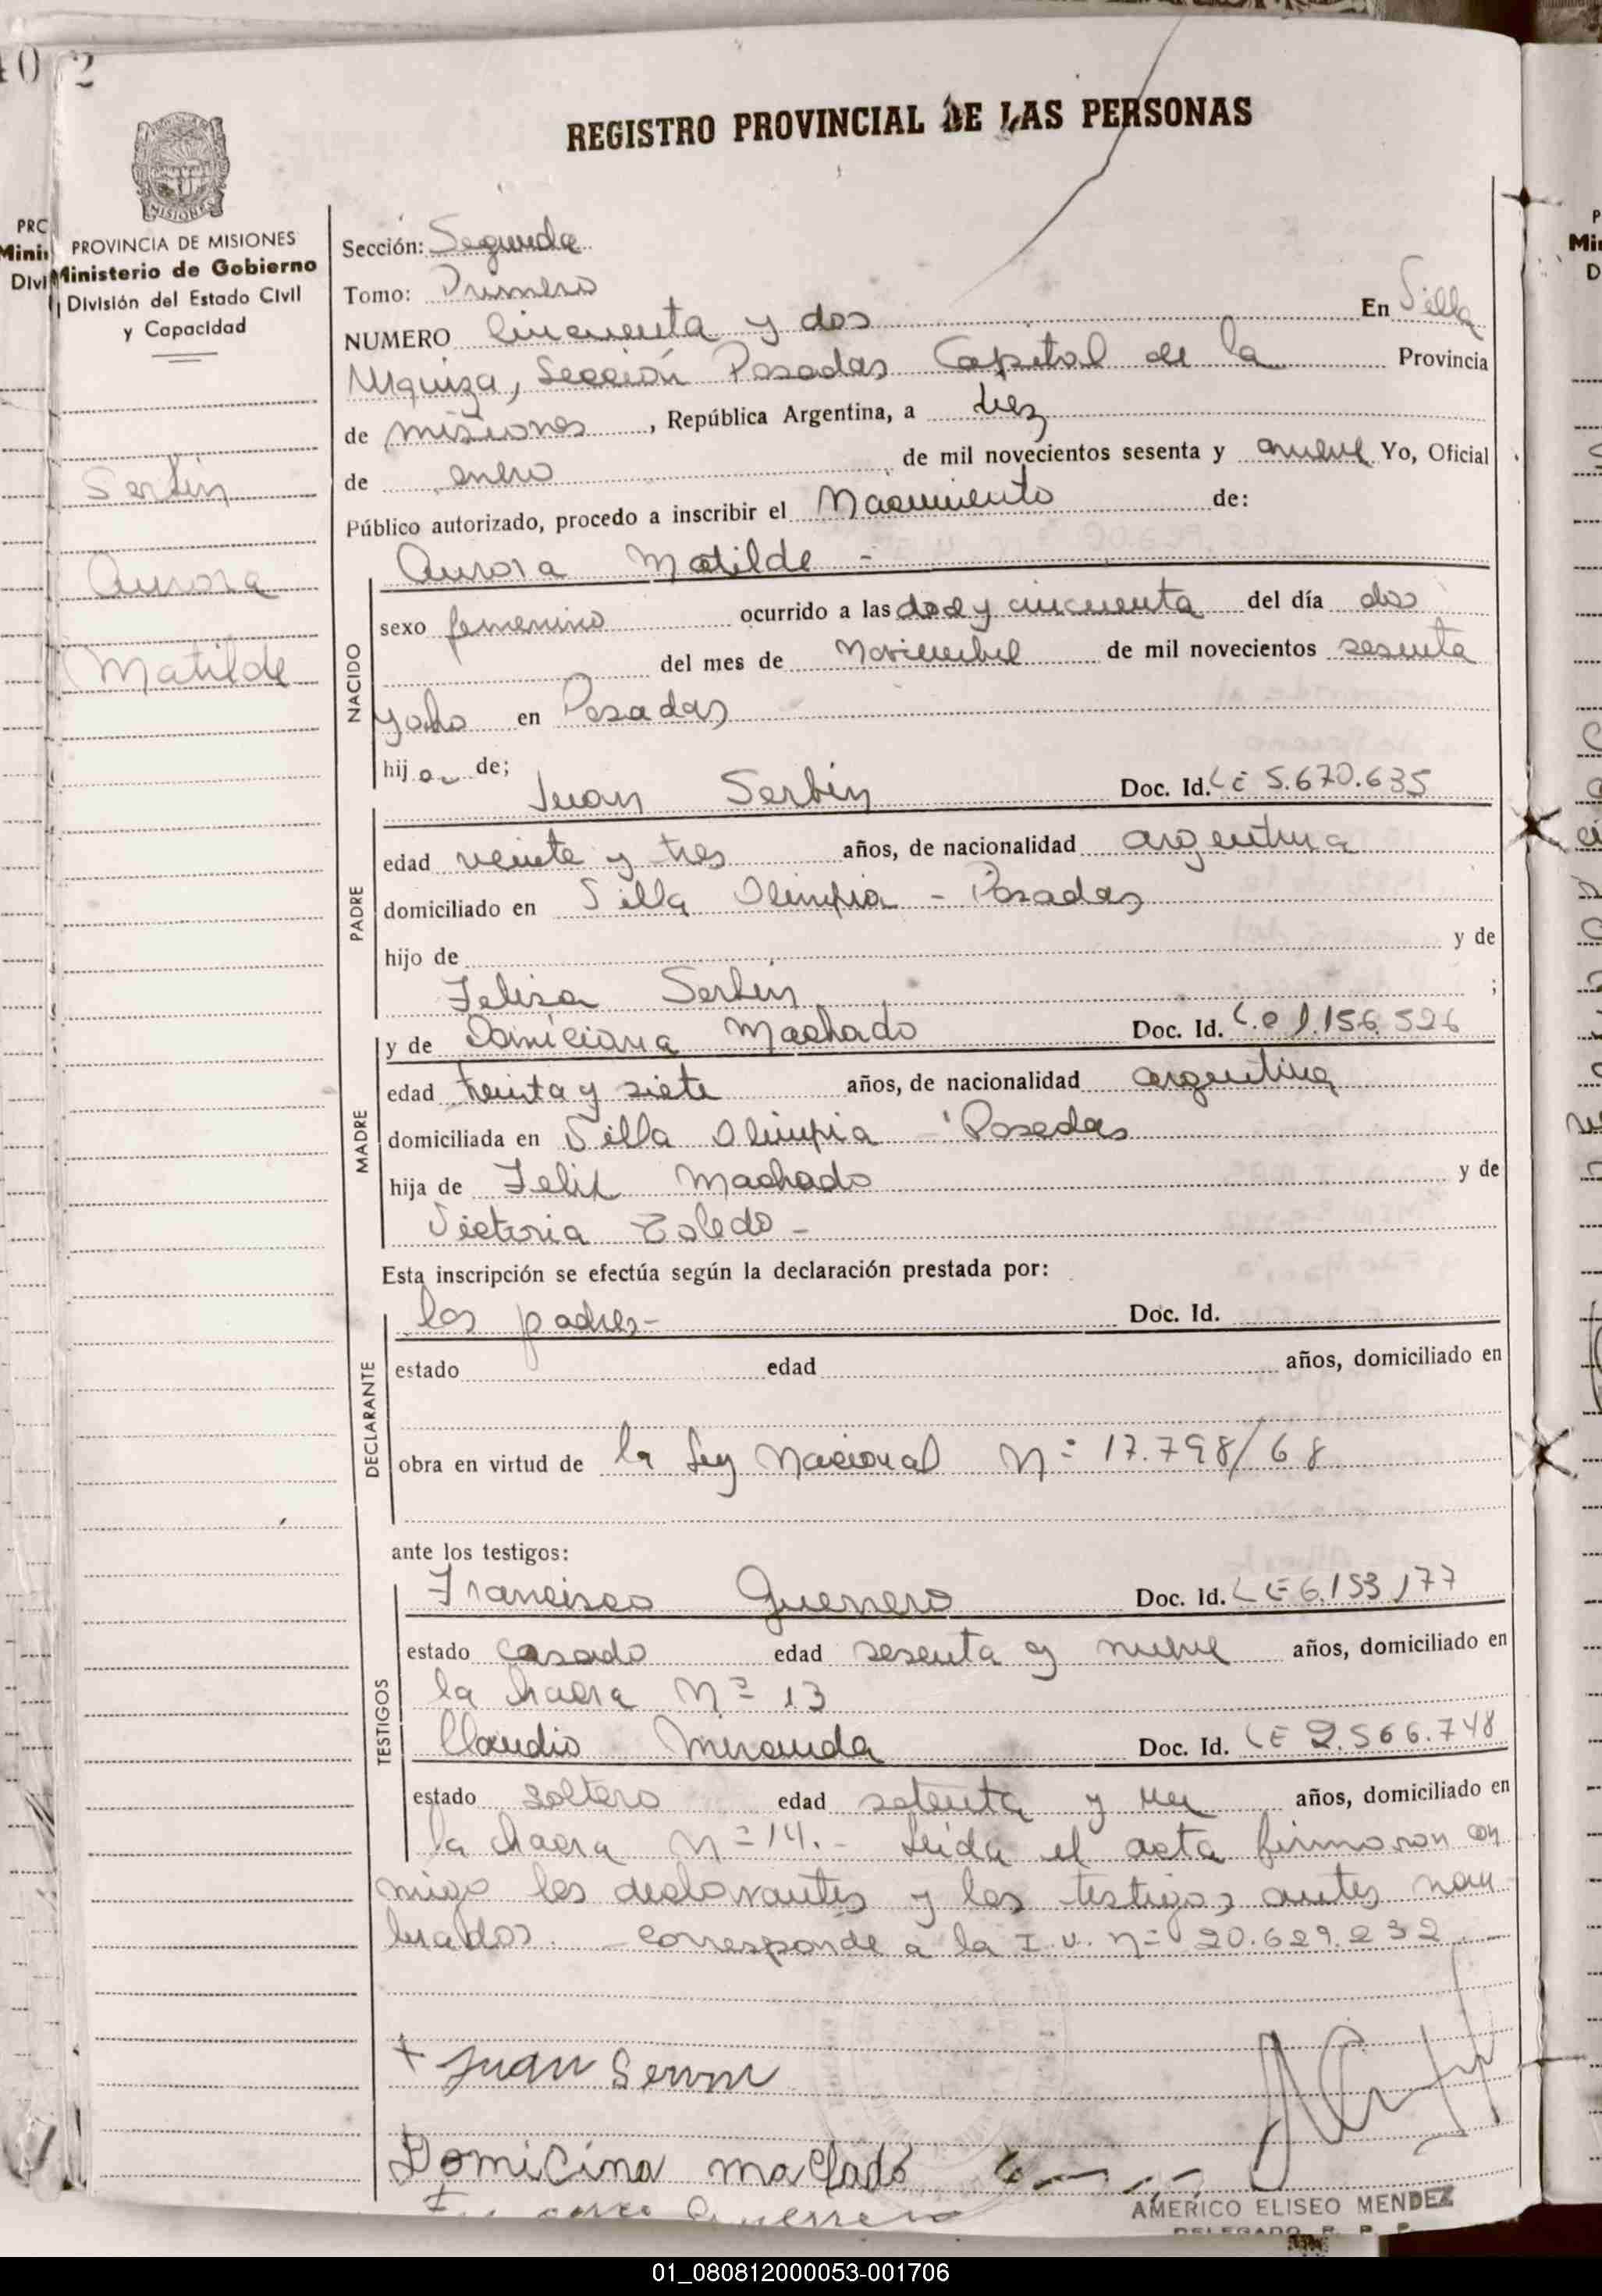 40 2
REGISTRO PROVINCIAL DE LAS PERSONAS
MISIONES
PROVINCIA DE MISIONES
Ministerio de Gobierno
División del Estado Civil
y Capacidad
Serbin
Aurora
Matilde
Sección: Segunda
Tomo: Primero
NUMERO Cincuenta y dos En Villa
Urquiza, Sección Posadas Capital de la Provincia
de misiones, República Argentina, a diez
de enero de mil novecientos sesenta y nueve Yo, Oficial
Público autorizado, procedo a inscribir el Nacimiento de:
Aurora Matilde -
NACIDO
sexo femenino ocurrido a las doce y cincuenta del día dos
del mes de Noviembre de mil novecientos sesenta
y ocho en Posadas
hija de;
Juan Serbin Doc. Id. LE 5.670.635
PADRE
edad veinte y tres años, de nacionalidad argentina
domiciliado en Villa Olimpia - Posadas
hijo de y de
Felisa Serbin ;
y de Domiciana Machado Doc. Id. L.C 1.156.526
MADRE
edad treinta y siete años, de nacionalidad argentina
domiciliada en Villa Olimpia - Posadas
hija de Felix Machado y de
Victoria Toledo -
Esta inscripción se efectúa según la declaración prestada por:
los padres- Doc. Id.
DECLARANTE
estado edad años, domiciliado en
obra en virtud de la Ley Nacional Nº 17.798/68
ante los testigos:
Francisco Guerrero Doc. Id. LE 6.153.177
TESTIGOS
estado casado edad sesenta y nueve años, domiciliado en
la chacra Nº 13
Claudio Miranda Doc. Id. LE 2.566.748
estado soltero edad setenta y un años, domiciliado en
la chacra Nº 14.- Leida el acta firmaron con
migo los declarantes y los testigos antes nom
brados. - Corresponde a la I.U. Nº 20.629.232
+ Juan Servin
Domicina machado
Guerrero
AMERICO ELISEO MENDEZ
DELEGADO R. P. P.
01_080812000053-001706